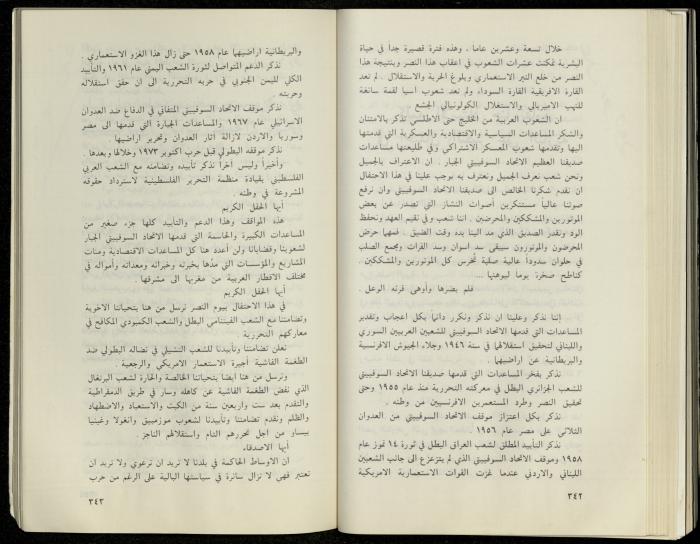 خلال تسعة وعشرين عاما ، وهذه فترة قصيرة جداً في حياة
البشرية تمكنت عشرات الشعوب في اعقاب هذا النصر وبنتيجة هذا
النصر من خلع النير الاستعماري وبلوغ الحرية والاستقلال . لم تعد
القارة الافريقية القارة السوداء ولم تعد شعوب آسيا لقمة سائغة
للنهب الامبريالي والاستغلال الكولونيالي الجشع
ان الشعوب العربية من الخليج حتى الاطلسي تذكر بالامتنان
والشكر المساعدات السياسية والاقتصادية والعسكرية التي قدمتها
اليها وتقدمها شعوب المعسكر الاشتراكي وفي طليعتها مساعدات
صديقنا العظيم الاتحاد السوفييتي الجبار . ان الاعتراف بالجميل
ونحن شعب نعرف الجميل ونعترف به يوجب علينا في هذا الاحتفال
ان نقدم شكرنا الخالص الى صديقنا الاتحاد السوفييتي وان نرفع
صوتنا عالياً مستنكرين أصوات النشاز التي تصدر عن بعض
الموتورين والمشككين والمحرضين . اننا شعب وفي نقيم العهد ونحفظ
الود ونقدر الصديق الذي مد الينا يده وقت الضيق . فمهما حرض
المحرضون والموتورون سيبقى سد اسوان وسد الفرات ومجمع الصلب
في حلوان سدوداً عالية صلبة تخرس كل الموتورين والمشككين .
كناطح صخرة يوما ليوهنها ...
فلم يضرها وأوهى قرنه الوعل .
إننا نذكر وعلينا ان نذكر ونكرر دائماً بكل اعجاب وتقدير
المساعدات التي قدمها الاتحاد السوفييتي للشعبين العربيين السوري
واللبناني لتحقيق استقلالها في سنة ١٩٤٦ وجلاء الجيوش الافرنسية
والبريطانية عن اراضيها .
نذكر بفخر المساعدات التي قدمها صديقنا الاتحاد السوفييتي
للشعب الجزائري البطل في معركته التحررية منذ عام ١٩٥٥ وحتى
تحقيق النصر وطرد المستعمرين الافرنسيين من وطنه .
نذكر بكل اعتزاز موقف الاتحاد السوفييتي من العدوان
الثلاثي على مصر عام ١٩٥٦ .
نذكر التأييد المطلق لشعب العراق البطل في ثورة ١٤ تموز عام
١٩٥٨ وموقف الاتحاد السوفييتي الذي لم يتزعزع الى جانب الشعبين
اللبناني والاردني عندما غزت القوات الاستعمارية الامريكية
٣٤٢
والبريطانية اراضيهما عام ١٩٥٨ حتى زال هذا الغزو الاستعماري .
نذكر الدعم المتواصل لثورة الشعب اليمني عام ١٩٦١ والتأييد
الكلي لليمن الجنوبي في حربه التحررية الى ان حقق استقلاله
وحريته .
نذكر موقف الاتحاد السوفييتي المتفاني في الدفاع ضد العدوان
الاسرائيلي عام ١٩٦٧ والمساعدات الجبارة التي قدمها الى مصر
وسوريا والاردن لازالة آثار العدوان وتحرير اراضيها .
نذكر موقفه البطولي قبل حرب اكتوبر ١٩٧٣ وخلالها وبعدها .
وأخيراً وليس آخراً نذكر تأييده وتضامنه مع الشعب العربي
الفلسطيني بقيادة منظمة التحرير الفلسطينية لاسترداد حقوقه
المشروعة في وطنه .
أيها الحفل الكريم
هذه المواقف وهذا الدعم والتأييد كلها جزء صغير من
المساعدات الكبيرة والحاسمة التي قدمها الاتحاد السوفييتي الجبار
لشعوبنا وقضايانا ولن أعدد هنا كل المساعدات الاقتصادية ومئات
المشاريع والمؤسسات التي مدّها بخبرته وخبرائه ومعداته وأمواله في
مختلف الاقطار العربية من مغربها الى مشرقها .
أيها الحفل الكريم
في هذا الاحتفال بيوم النصر نرسل من هنا بتحياتنا الاخوية
وتضامننا مع الشعب الفيتنامي البطل والشعب الكمبودي المكافح في
معاركهم التحررية .
نعلن تضامننا وتأييدنا للشعب التشيلي في نضاله البطولي ضد
الطغمة الفاشية أجيرة الاستعمار الامريكي والرجعية .
ونرسل من هنا ايضا بتحياتنا الخالصة والحارة لشعب البرتغال
الذي نفض الطغمة الفاشية عن كاهله وسار في طريق الديمقراطية
والتقدم بعد ست واربعين سنة من الكبت والاستعباد والاضطهاد
والظلم ونقدم تضامننا وتأييدنا لشعوب موزمبيق وانغولا وغينيا
بيساو من اجل تحررهم التام واستقلالهم الناجز .
أيها الاصدقاء
ان الاوساط الحاكمة في بلدنا لا تريد ان ترعوي ولا تريد ان
تعتبر فهي لا تزال سائرة في سياستها البالية على الرغم من حرب
٣٤٣